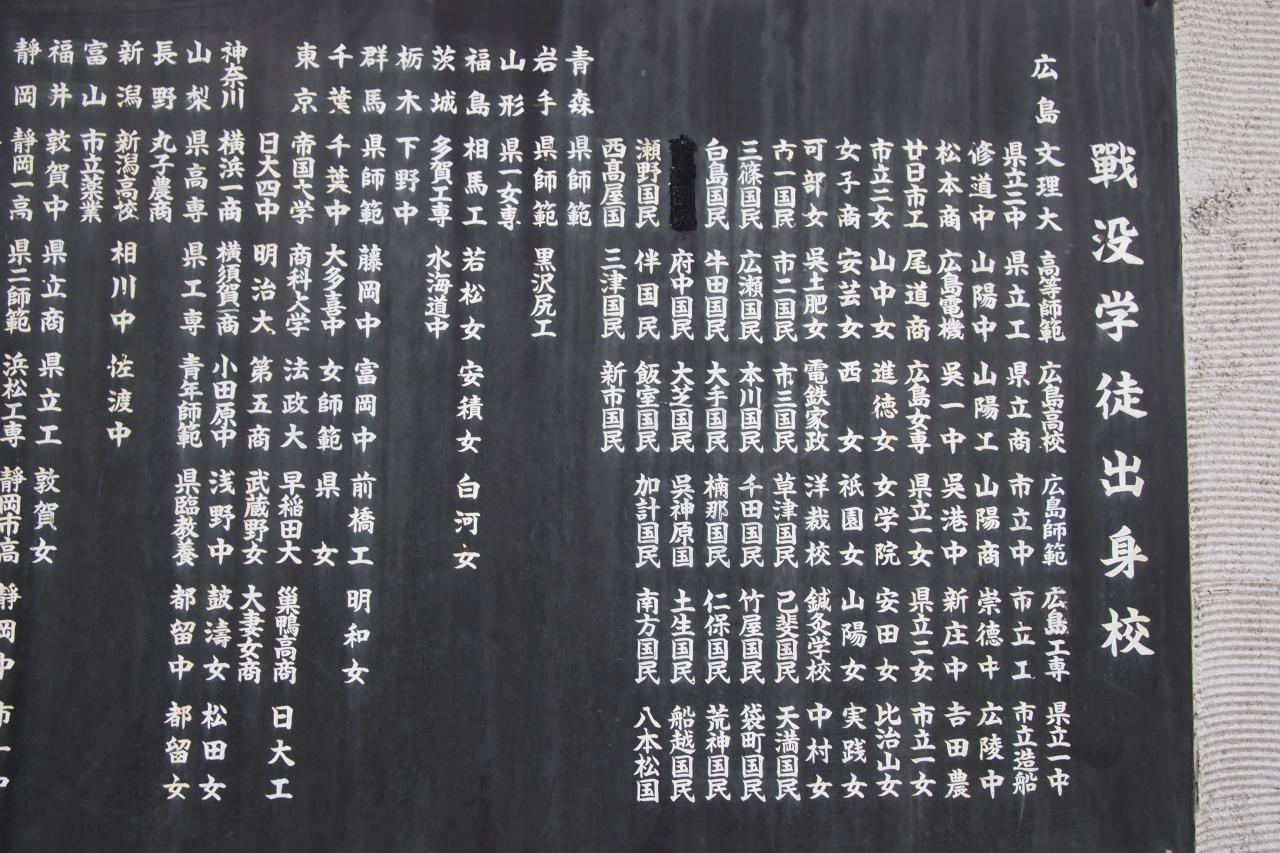 戰没学徒出身校
広島 文理大 高等師範 広島高校 広島師範 広島工専 県立一中
県立二中 県立工 県立商 市立中 市立工 市立造船
修道中 山陽中 山陽工 山陽商 崇徳中 広陵中
松本商 広島電機 呉一中 呉港中 新庄中 吉田農
廿日市工 尾道商 広島女専 県立一女 県立二女 市立一女
市立二女 山中女 進徳女 女学院 安田女 比治山女
女子商 安芸女 西女 祇園女 山陽女 実践女
可部女 呉土肥女 電鉄家政 洋裁校 鍼灸学校 中村女
古一国民 市二国民 市三国民 草津国民 己斐国民 天満国民
三篠国民 広瀬国民 本川国民 千田国民 竹屋国民 袋町国民
白島国民 牛田国民 大手国民 楠那国民 仁保国民 荒神国民
府中国民 大芝国民 呉神原国 土生国民 船越国民
瀬野国民 伴国民 飯室国民 加計国民 南方国民 八本松国
西高屋国 三津国民 新市国民
青森 県師範
岩手 県師範 黒沢尻工
山形 県一女専
福島 相馬工 若松女 安積女 白河女
茨城 多賀工専 水海道中
栃木 下野中
群馬 県師範 藤岡中 富岡中 前橋工 明和女
千葉 千葉中 大多喜中 女師範 県女
東京 帝国大学 商科大学 法政大 早稲田大 巣鴨高商 日大工
日大四中 明治大 第五商 武蔵野女 大妻女商
神奈川 横浜一商 横須賀商 小田原中 浅野中 鼓濤女 松田女
山梨 県高専 県工専 青年師範 県臨教養 都留中 都留女
長野 丸子農商
新潟 新潟高校 相川中 佐渡中
富山 市立薬業
福井 敦賀中 県立商 県立工 敦賀女
静岡 静岡一高 県二師範 浜松工専 静岡市高 静岡中 市一中